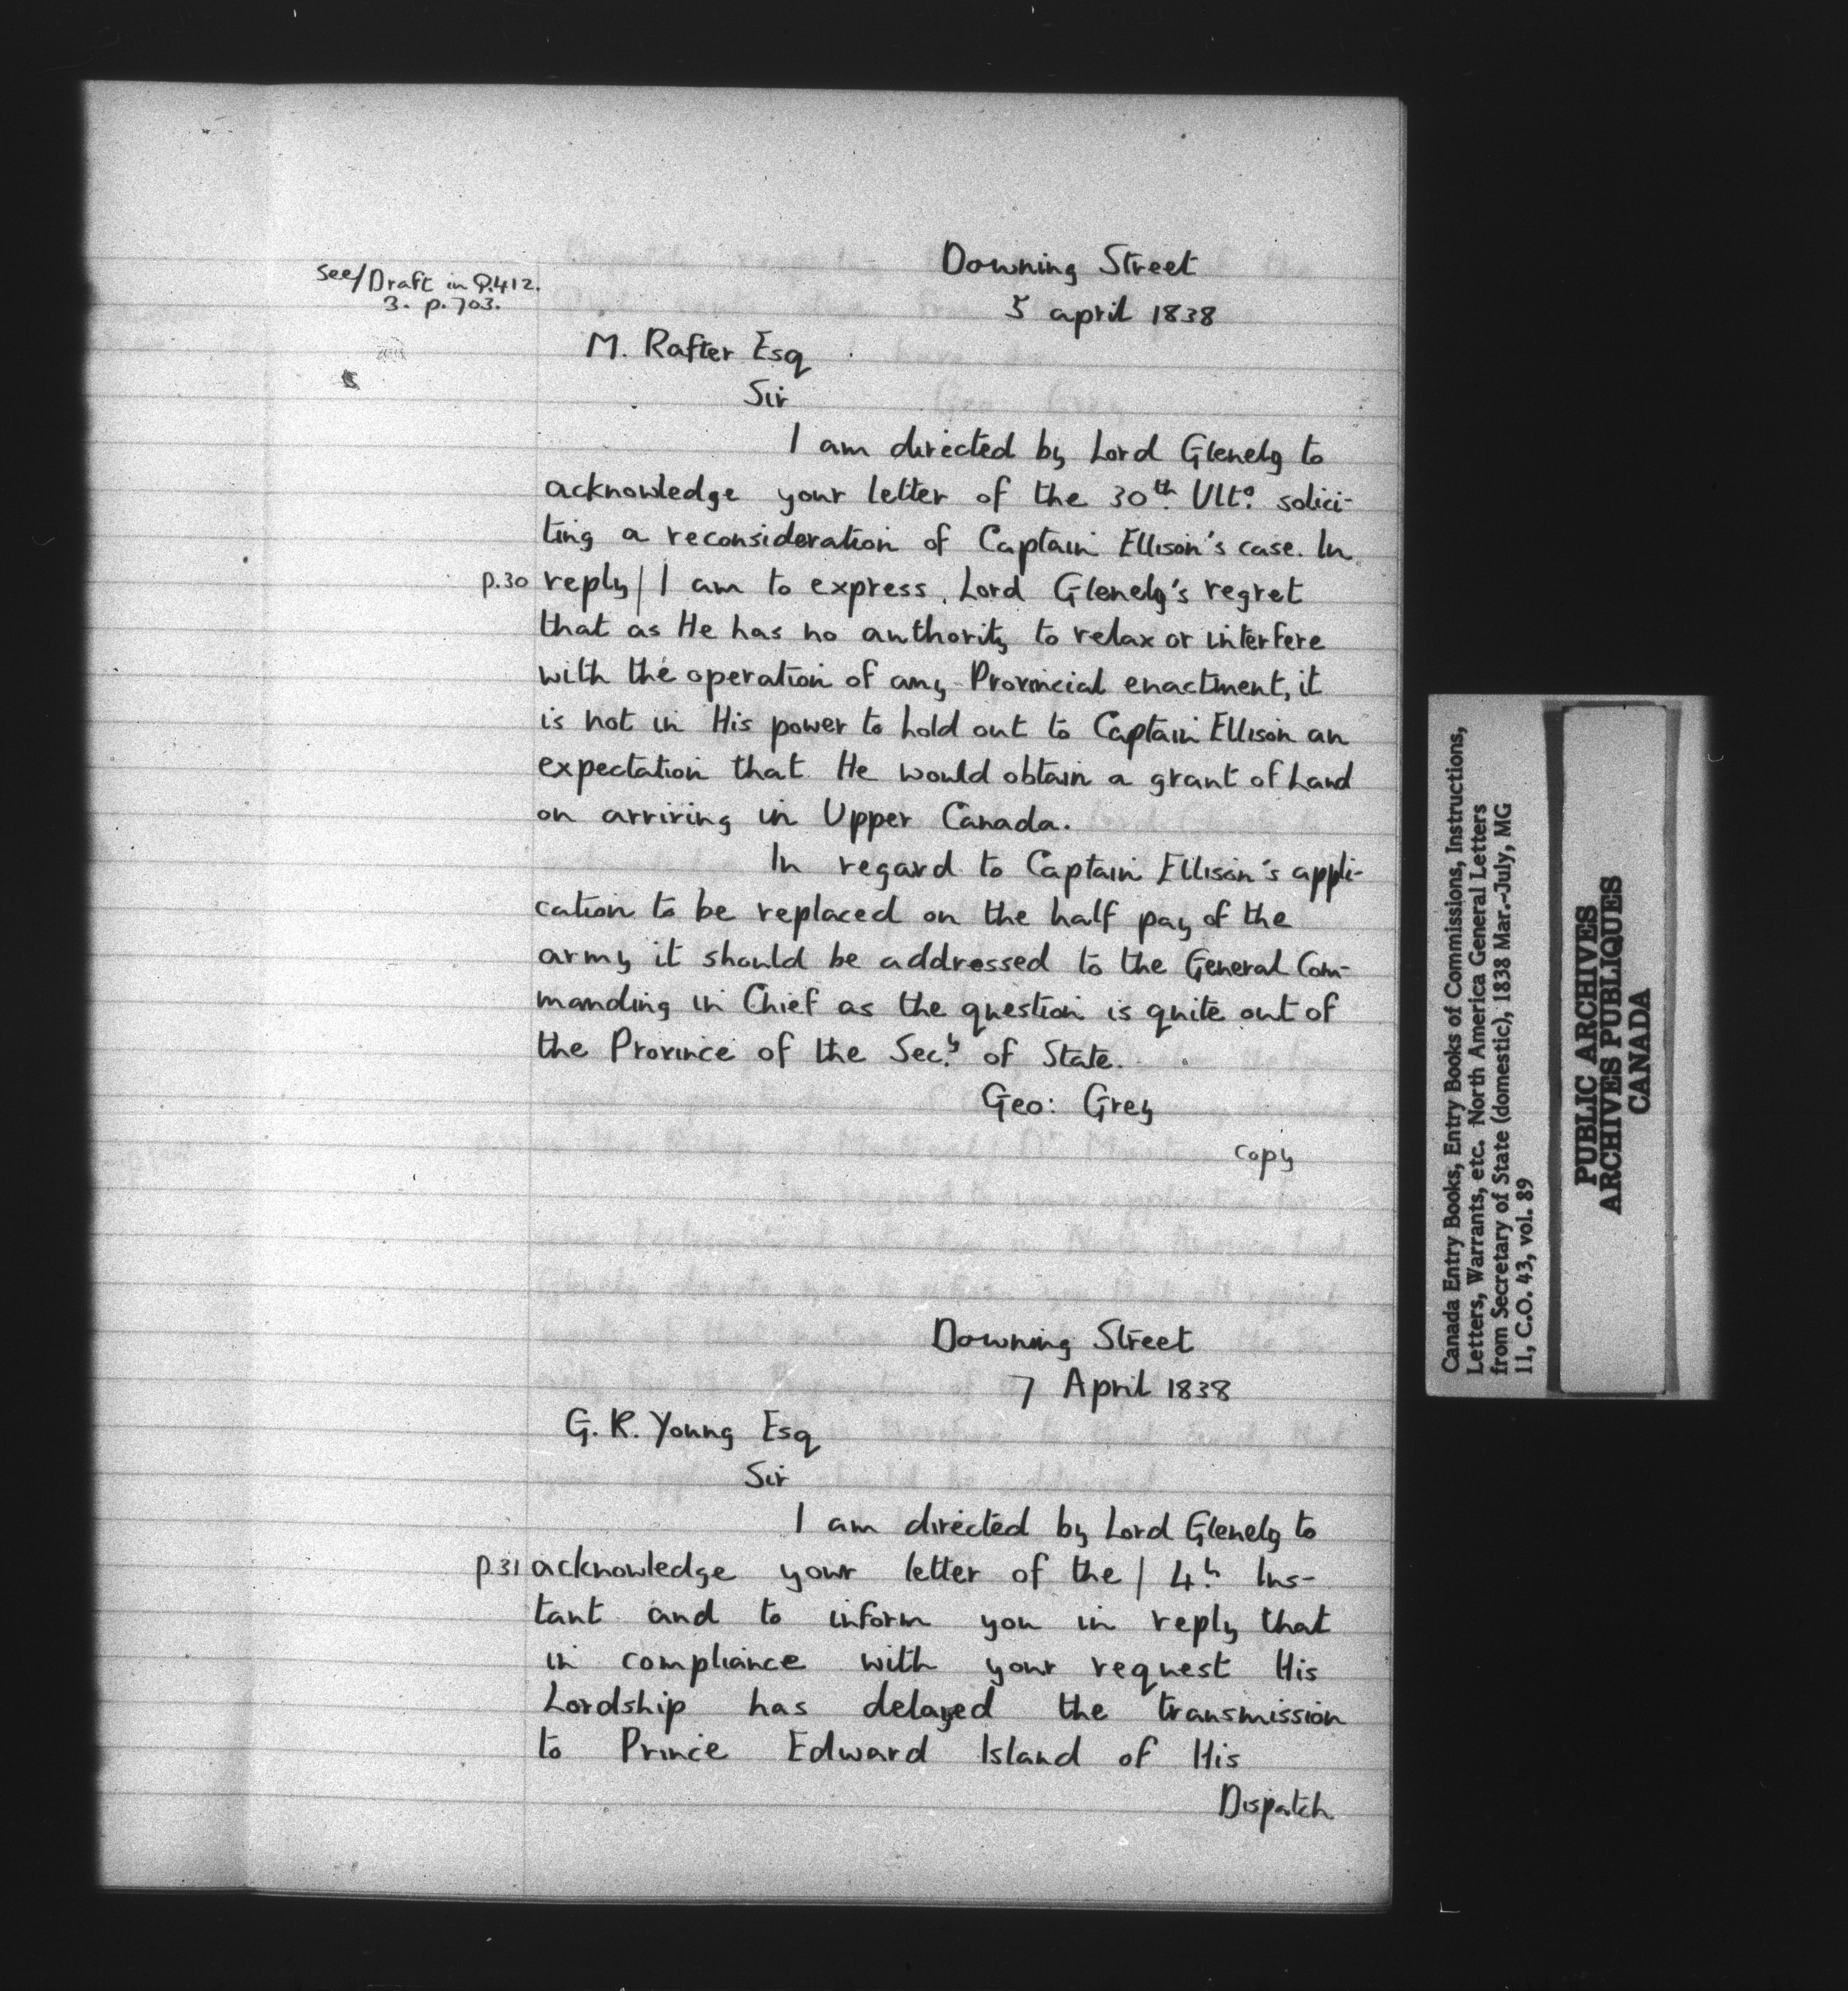 See/Draft in Q.412.
3. p.703.
Downing Street
5 april 1838
M. Rafter Esq
Sir
I am directed by Lord Glenelg to
acknowledge your letter of the 30th. Ulto. solici-
ting a reconsideration of Captain Ellison's case. In
p.30 reply/ I am to express Lord Glenelg's regret
that as He has no authority to relax or interfere
with the operation of any Provincial enactment, it
is not in His power to hold out to Captain Ellison an
expectation that He would obtain a grant of Land
on arriving in Upper Canada.
In regard to Captain Ellison's appli-
cation to be replaced on the half pay of the
army it should be addressed to the General Com-
manding in Chief as the question is quite out of
the Province of the Secy. of State.
Geo: Grey
copy
Downing Street
7 April 1838
G. R. Young Esq
Sir
I am directed by Lord Glenelg to
p.31 acknowledge your letter of the / 4h. Ins-
tant and to inform you in reply that
in compliance with your request His
Lordship has delayed the transmission
to Prince Edward Island of His
Dispatch
Canada Entry Books, Entry Books of Commissions, Instructions,
Letters, Warrants, etc. North America General Letters
from Secretary of State (domestic), 1838 Mar.-July, MG
11, C.O. 43, vol. 89
PUBLIC ARCHIVES
ARCHIVES PUBLIQUES
CANADA